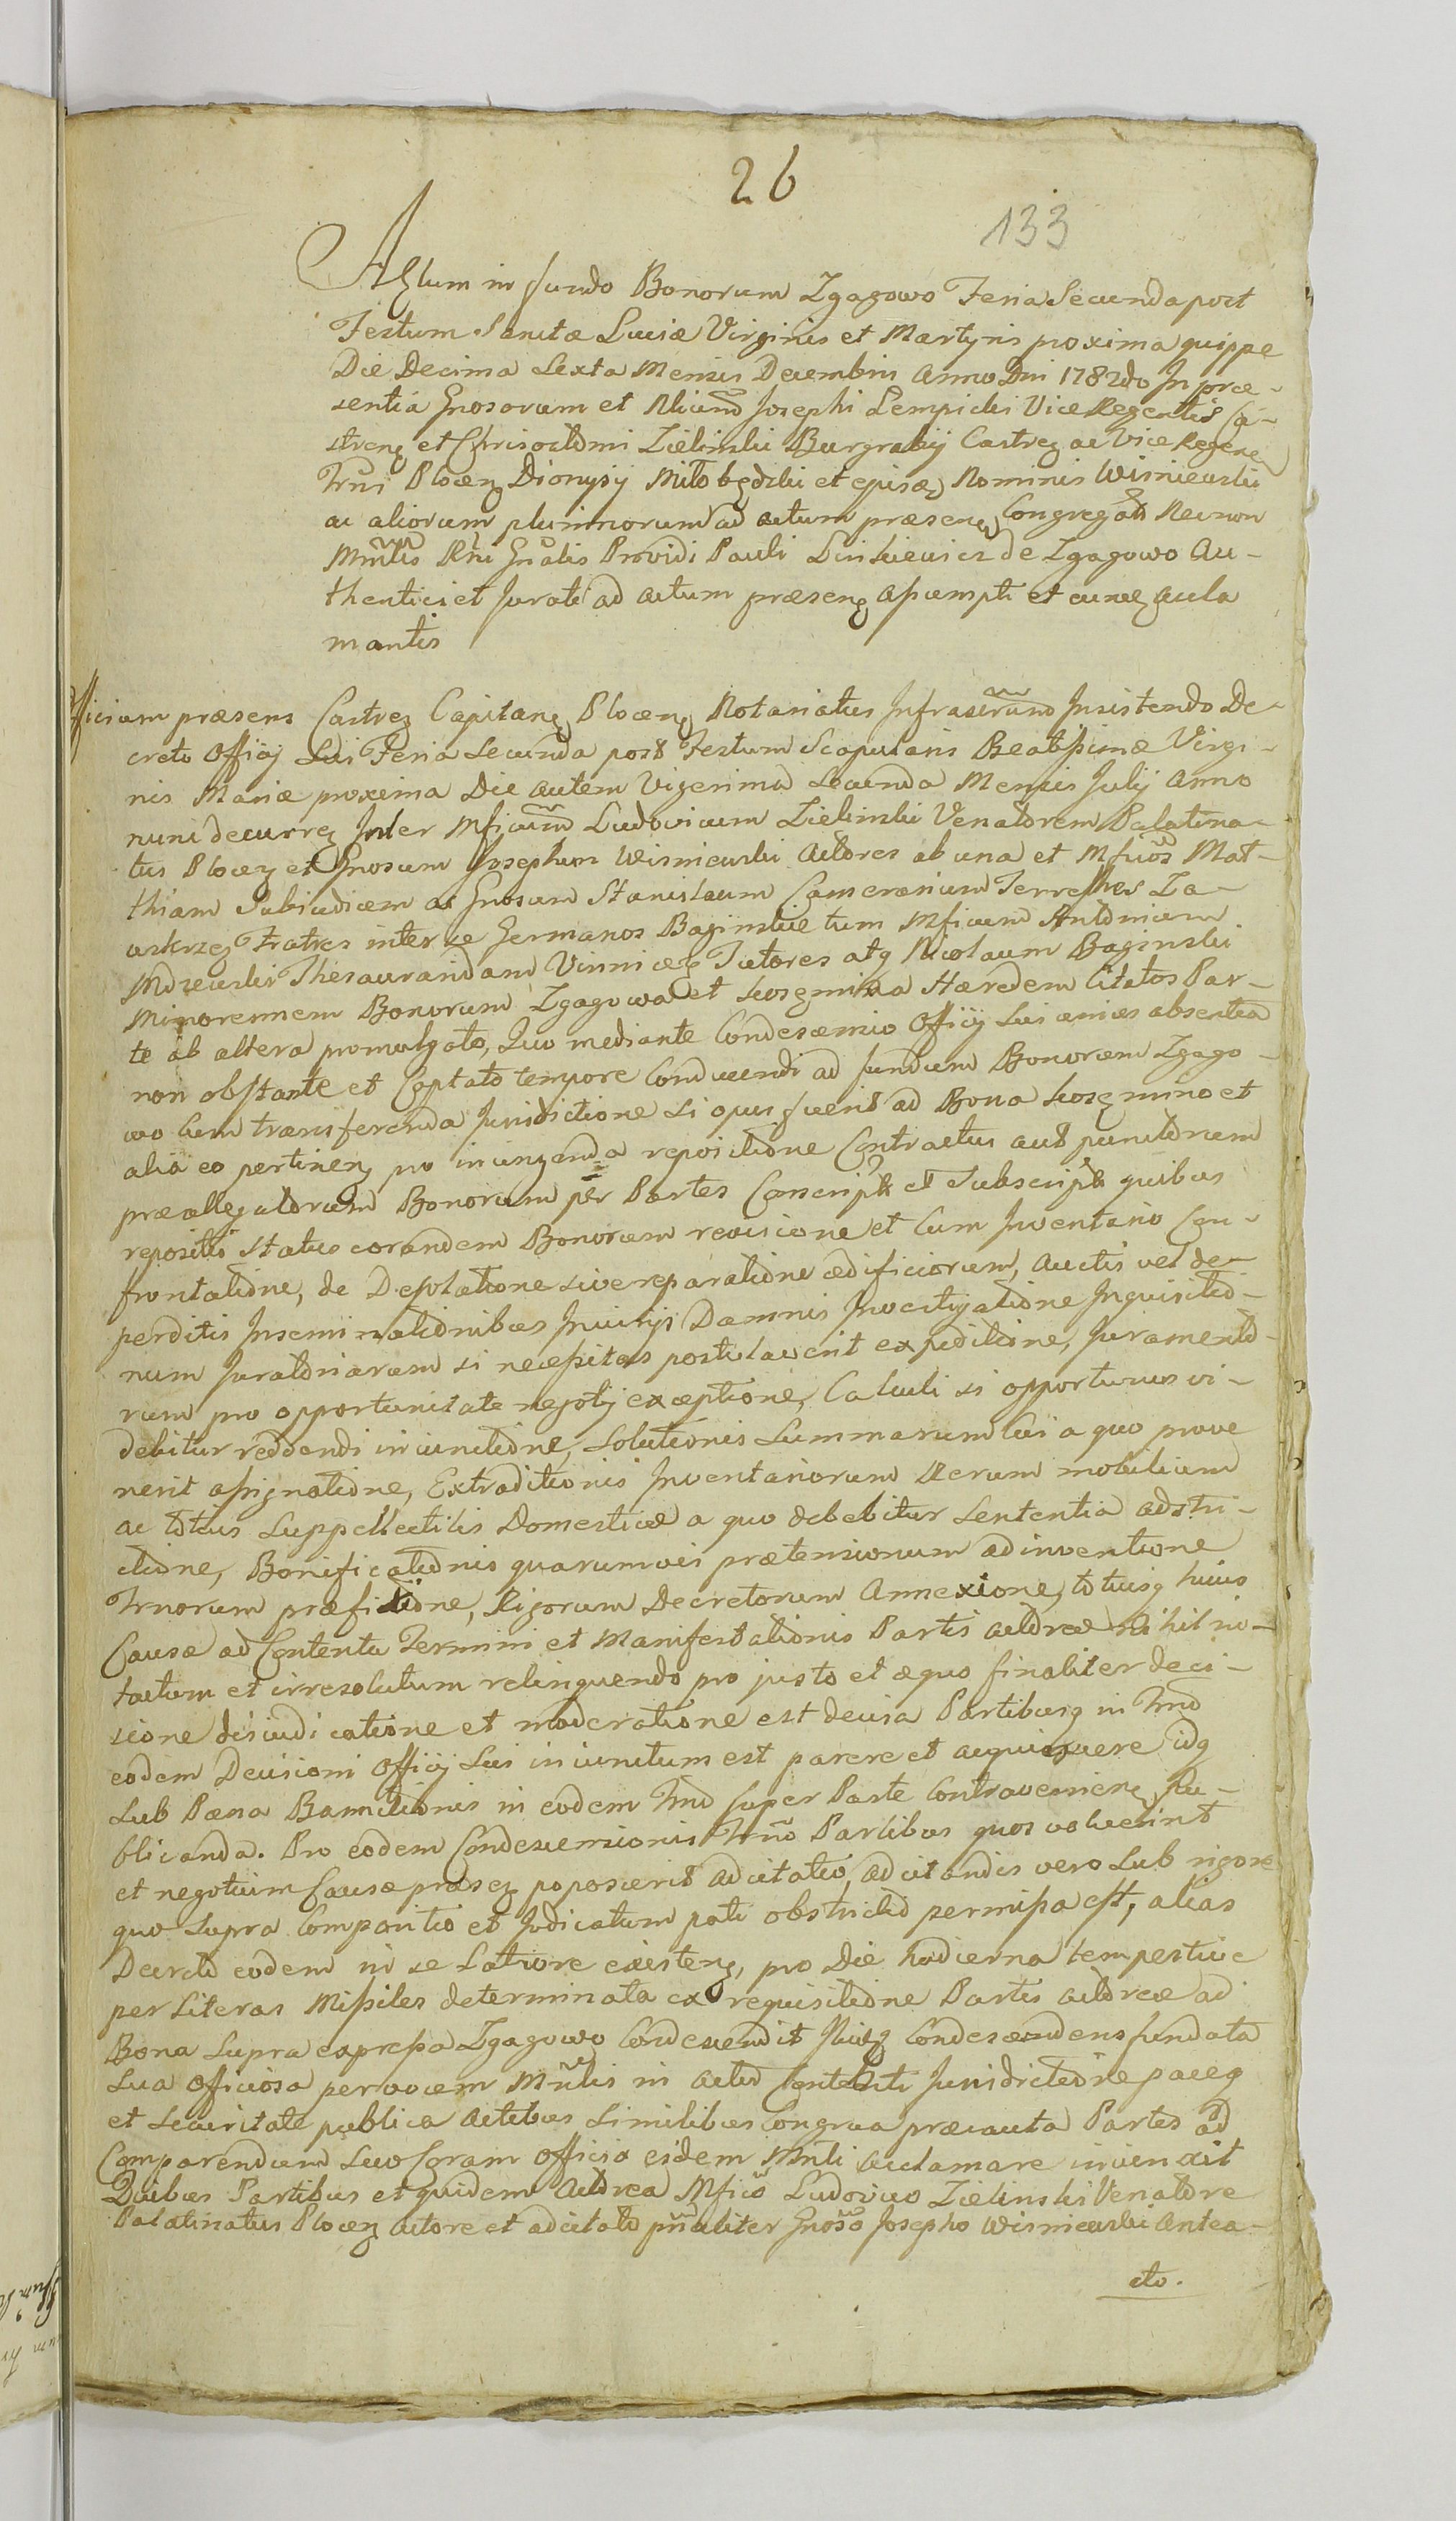 26
133
Actum in fundo Bonorum Zgagowo Feria Secunda post
Festum Sanctæ Luciæ Virginis et Martyris proxima quippe
Die Decima Sexta Mensis Decembris Anno Dni 1782do In præ-
sentia Gnosorum et Josephi Lempicki Vice Regentis Ca-
streñ et Chrisostomi Zielinski Burgrabij Castreñ ac Vice Regen
Trni Plocen Dionysij Miłobędzki et ejusd Nominis Wisniewski
ac aliorum plurimorum ad actum præsen Congregat Necnon
Mnlis Rni Gnalis Providi Pauli de Zgagowo Au-
thentici et Jurati ad actum præsen assumpti et accla
mantis
Officium præsens Castren Capitan Plocen Notariatus Infrascrium Insistendo De-
creto Officij Sui Feria Secunda post Festum Scapularis Beatissimæ Virgi-
nis Mariæ proxima Die autem Vigesima Secunda Mensis Julij Anno
nunc decurren Inter Mficum Ludovicum Zielinski Venatorem Palatina-
tus Plocen et Gnosum Josephum Wisniewski Actores ab una et Mficos Mat-
thiam Subiudicem ac Gnosum Stanislaum Camerarium Terrestres Za-
wskrzen Fratres inter se Germanos Baginskie tum Mficum Antonium
Mdzewski Thesaurarium Vinnicen Tutores atq Nicolaum Baginski
Minorennem Bonorum Zgagowo et Heredem Citatos Par-
te ab altera promulgato, Quo mediante Condescensio Officij Sui absentia
non obstante et Captato tempore Conducendi ad fundum Bonorum Zgago-
wo Cum transferenda Jurisdictione si opus fuerit ad Bona et
alia eo pertinen pro iniungenda repositione Contractus aut punctorum
præallegatorum Bonorum per Partes Conscript et Subscript quibus
repositis Status eorundem Bonorum revisione et Cum Inventario Con-
frontatione, de Desolatione sive reparatione ædificiorum, auctis vel de-
perditis Inseminationibus Iniurijs Damnis Investigatione Inquisitio-
num Juratoriarum si necessitas postulaverit expeditione, Juramento-
rum pro opportunitate negotij exceptione, Calculi si opportunus vi-
debitur reddendi iniunctione, Solutionis Summarum Cui a quo prove
nerit assignatione, Extraditionis Inventariorum Rerum mobilium
ac totius Suppellectilis Domesticæ a quo debebitur Sententia adstri-
ctione, Bonificationis quarumvis prætensionum adinventione
Trnorum præfixione, Rigorum Decretorum Annexione, totiusq huius
Causæ ad Contenta Termini et Manifestationis Partis actoreæ nihil in-
tactum et irresolutum relinquendo pro justo et æquo finaliter deci-
sione disiudicatione et moderatione est decisa Partibusq in Trno
eodem Decisioni Officij Sui iniunctum est parere et acquiescere idq
Sub Pæna Bannitionis in eodem Trno super Parte Contravenien Pu-
blicanda. Pro eodem Condescensionis Trno Partibus quos voluerint
et negotium Causæ præsen poposcerit adcitatio, adcitandis vero Sub rigore
quo Supra Comparitio et Judicatum pati obstrictio permissa est, alias
Decreto eodem in se Latiore existen, pro Die hodierna tempestive
per Literas Missiles determinata ex requisitione Partis actoreæ ad
Bona Supra expressa Zgagowo Condescendit Condescendens fundata
Sua Officiosa per vocem Mnlis in actu Contenti Jurisdictione paceq
et Securitate publica actibus Similibus Congrua præcauta Partes ad
Comparendum Suo Coram Officio eidem Mnli acclamare iniunxit
Quibus Partibus et quidem Actorea Mfico Ludovico Zielinski Venatore
Palatinatus Plocen actore et adcitato pnaliter Gnoso Josepho Wisniewski Antea-
cto.